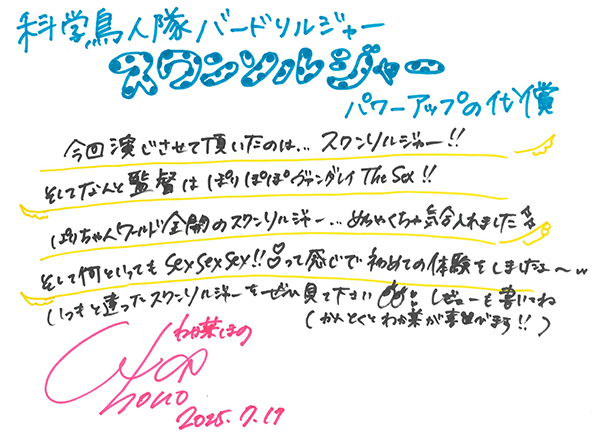 科学鳥人隊バードソルジャー
スワンソルジャー
パワーアップの代償
今回演じさせて頂いたのは... スワンソルジャー!!
そしてなんと監督は ぽりぽぽぽヴァンダレイ The Sex!!
ぽりちゃんワールド全開のスワンソルジャー...めちゃくちゃ気合入れました
そして何といっても Sex Sex Sex!! って感じで初めての体験をしましたよ〜w
いつもと違ったスワンソルジャーをぜひ見て下さい レビューも書いてね
(かんとくとわか葉が喜びます!!)
わか葉ほの
hono
2025.7.17